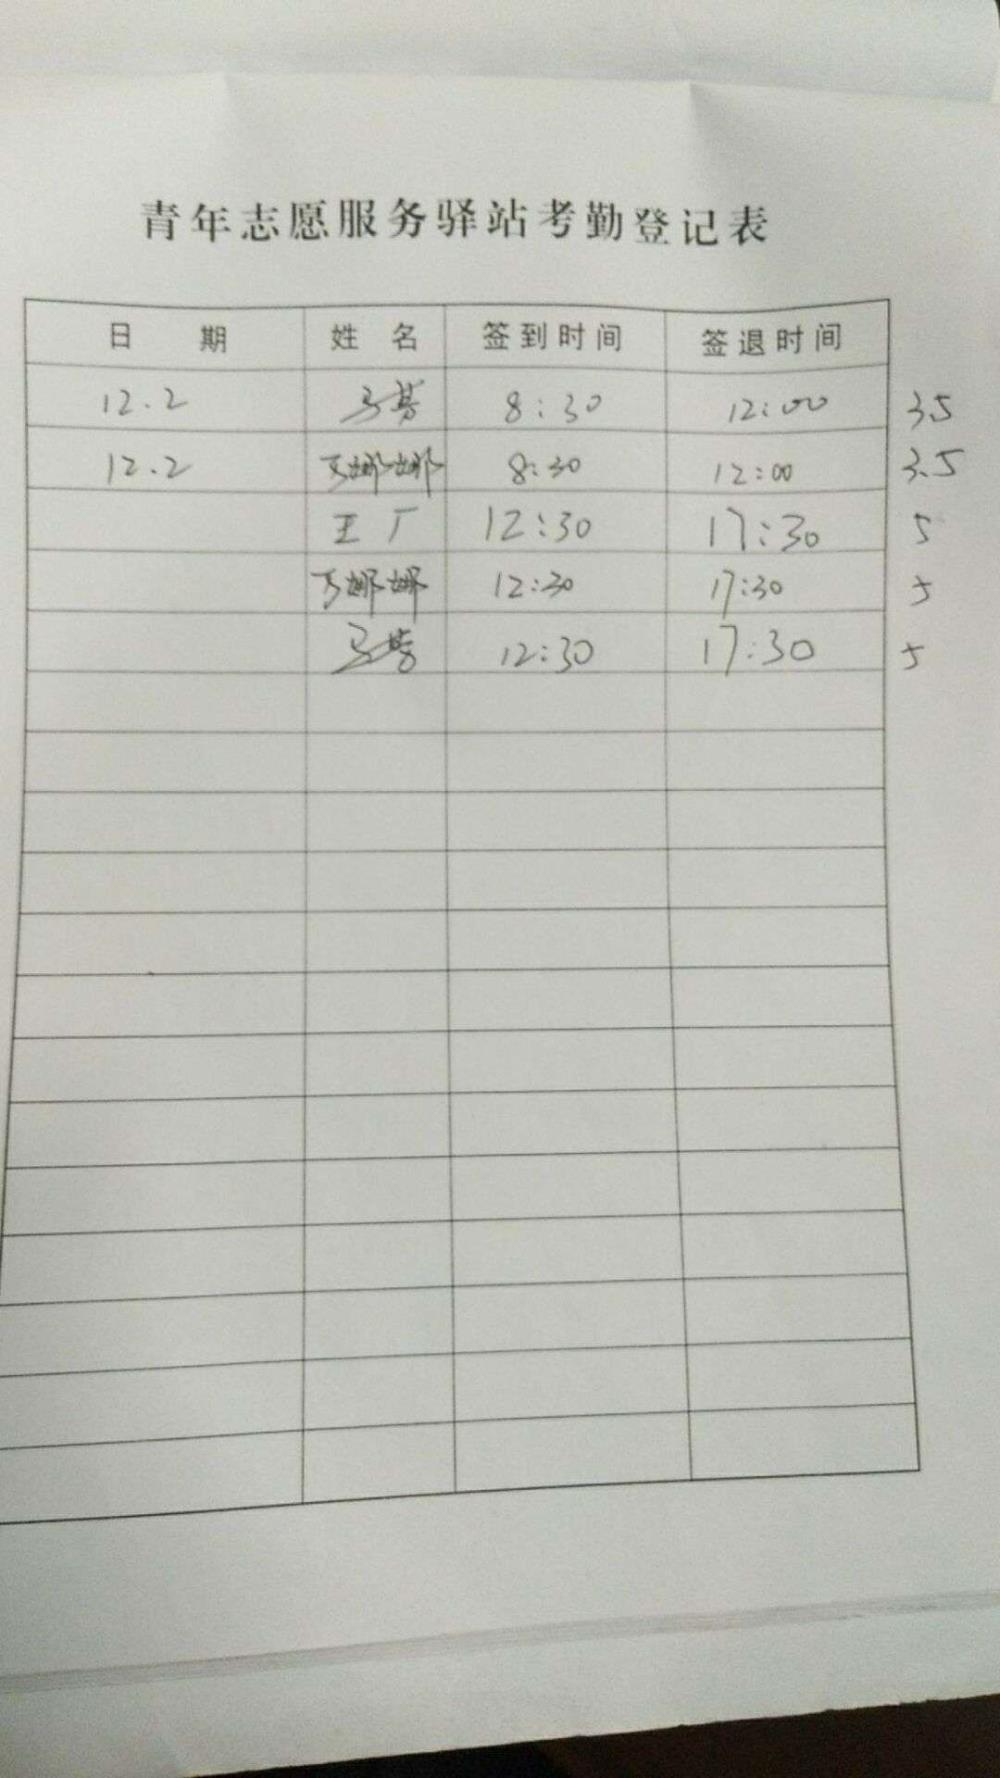 青年志愿服务驿站考勤登记表
日 期 姓 名 签到时间 签退时间
12.2 马 8:30 12:00 3.5
12.2 娜娜 8:30 12:00 3.5
王厂 12:30 17:30 5
娜娜 12:30 17:30 5
马 12:30 17:30 5